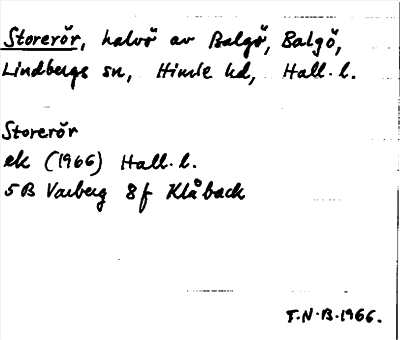 Storerör, halvö av Balgö, Balgö,
Lindbergs sn, Himle hd, Hall. l.
Storerör
ek (1966) Hall. l.
5B Varberg 8f Klåback
T.N.B. 1966.